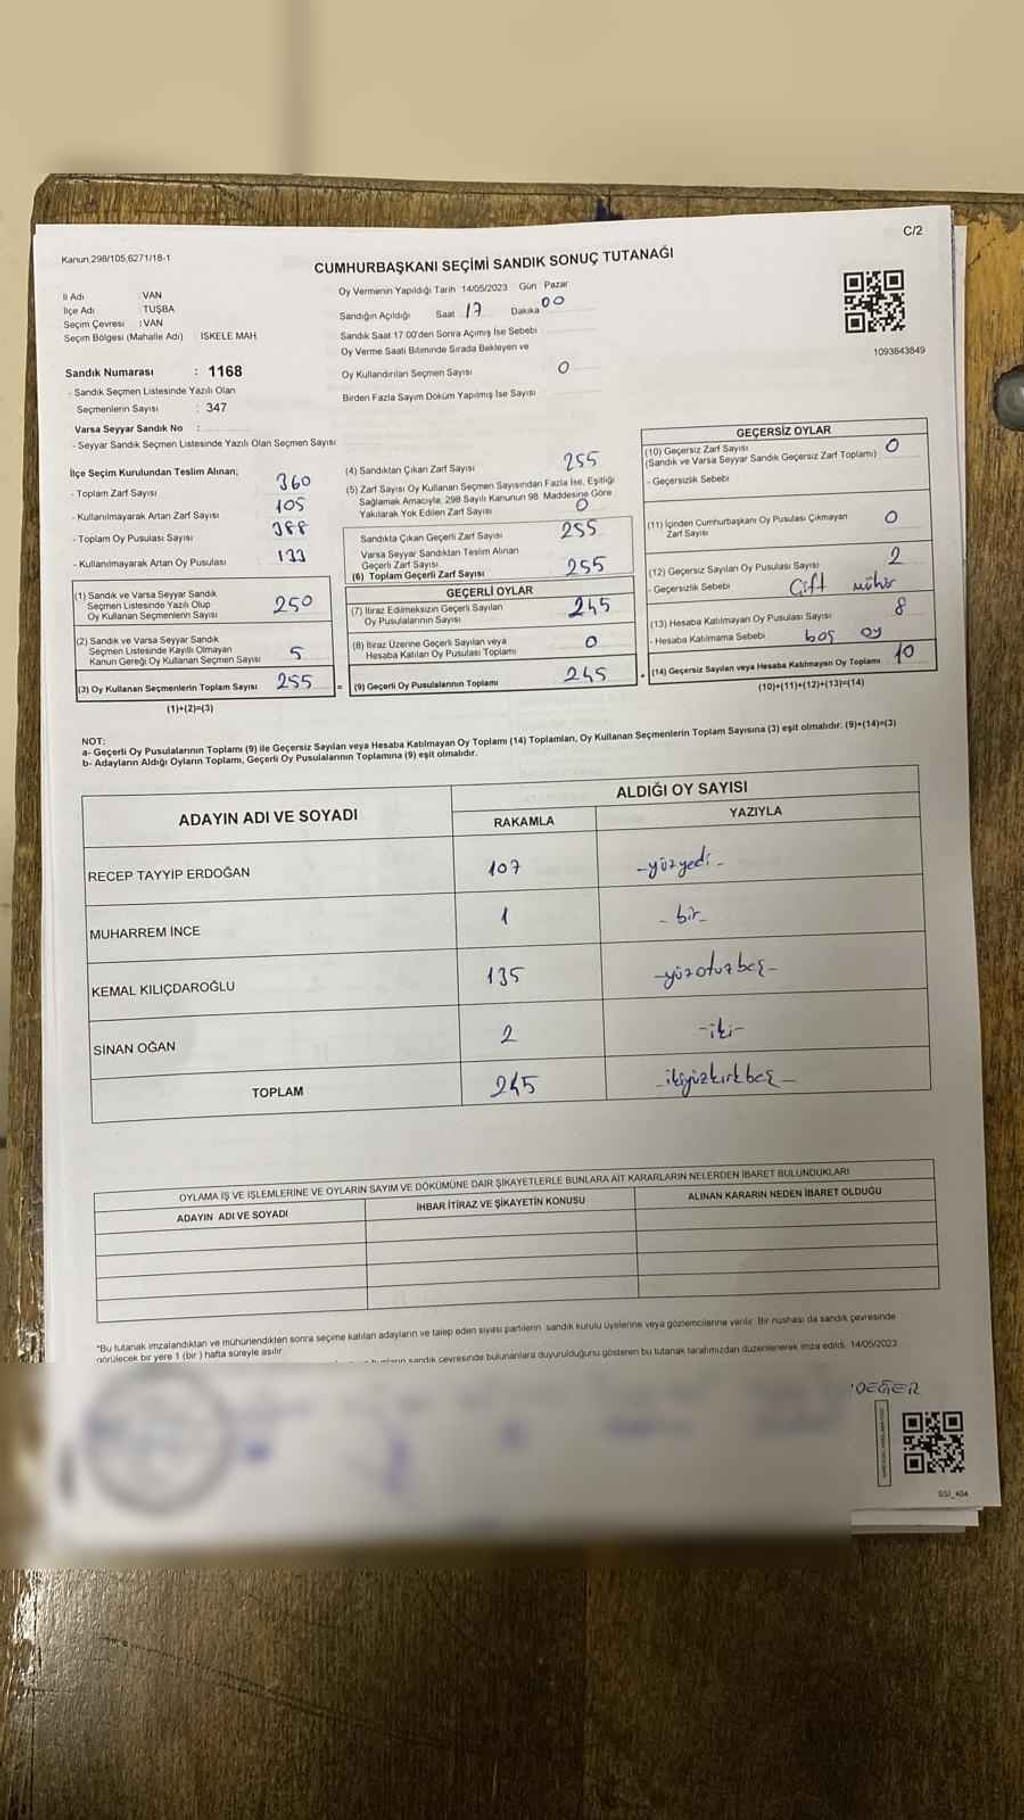 C/2
Kanun,298/105,6271/18-1
CUMHURBAŞKANI SEÇİMİ SANDIK SONUÇ TUTANAĞI
İl Adı : VAN
İlçe Adı : TUŞBA
Seçim Çevresi : VAN
Seçim Bölgesi (Mahalle Adı) İSKELE MAH
Sandık Numarası : 1168
- Sandık Seçmen Listesinde Yazılı Olan
Seçmenlerin Sayısı : 347
Varsa Seyyar Sandık No :
- Seyyar Sandık Seçmen Listesinde Yazılı Olan Seçmen Sayısı
Oy Vermenin Yapıldığı Tarih 14/05/2023 Gün Pazar
Sandığın Açıldığı Saat 17 Dakika 00
Sandık Saat 17.00'den Sonra Açımış İse Sebebi
Oy Verme Saati Bitiminde Sırada Bekleyen ve
Oy Kullandırılan Seçmen Sayısı 0
Birden Fazla Sayım Döküm Yapılmış İse Sayısı
1093843849
İlçe Seçim Kurulundan Teslim Alınan;
- Toplam Zarf Sayısı 360
- Kullanılmayarak Artan Zarf Sayısı 105
- Toplam Oy Pusulası Sayısı 388
- Kullanılmayarak Artan Oy Pusulası 133
(1) Sandık ve Varsa Seyyar Sandık
Seçmen Listesinde Yazılı Olup
Oy Kullanan Seçmenlerin Sayısı 250
(2) Sandık ve Varsa Seyyar Sandık
Seçmen Listesinde Kayıtlı Olmayan
Kanun Gereği Oy Kullanan Seçmen Sayısı 5
(3) Oy Kullanan Seçmenlerin Toplam Sayısı 255
(1)+(2)=(3)
(4) Sandıktan Çıkan Zarf Sayısı 255
(5) Zarf Sayısı Oy Kullanan Seçmen Sayısından Fazla İse, Eşitliği
Sağlamak Amacıyla, 298 Sayılı Kanunun 98. Maddesine Göre
Yakılarak Yok Edilen Zarf Sayısı 0
Sandıkta Çıkan Geçerli Zarf Sayısı 255
Varsa Seyyar Sandıktan Teslim Alınan
Geçerli Zarf Sayısı
(6) Toplam Geçerli Zarf Sayısı 255
GEÇERLİ OYLAR
(7) İtiraz Edilmeksizin Geçerli Sayılan
Oy Pusulalarının Sayısı 245
(8) İtiraz Üzerine Geçerli Sayılan veya
Hesaba Katılan Oy Pusulası Toplamı 0
= (9) Geçerli Oy Pusulalarının Toplamı 245
GEÇERSİZ OYLAR
(10) Geçersiz Zarf Sayısı 0
(Sandık ve Varsa Seyyar Sandık Geçersiz Zarf Toplamı)
- Geçersizlik Sebebi
(11) İçinden Cumhurbaşkanı Oy Pusulası Çıkmayan
Zarf Sayısı 0
(12) Geçersiz Sayılan Oy Pusulası Sayısı 2
- Geçersizlik Sebebi Çift mühür
(13) Hesaba Katılmayan Oy Pusulası Sayısı 8
- Hesaba Katılmama Sebebi boş oy
+ (14) Geçersiz Sayılan veya Hesaba Katılmayan Oy Toplamı 10
(10)+(11)+(12)+(13)=(14)
NOT:
a- Geçerli Oy Pusulalarının Toplamı (9) ile Geçersiz Sayılan veya Hesaba Katılmayan Oy Toplamı (14) Toplamları, Oy Kullanan Seçmenlerin Toplam Sayısına (3) eşit olmalıdır. (9)+(14)=(3)
b- Adayların Aldığı Oyların Toplamı, Geçerli Oy Pusulalarının Toplamına (9) eşit olmalıdır.
ADAYIN ADI VE SOYADI
ALDIĞI OY SAYISI
RAKAMLA YAZIYLA
RECEP TAYYİP ERDOĞAN 107 -yüzyedi-
MUHARREM İNCE 1 -bir-
KEMAL KILIÇDAROĞLU 135 -yüzotuzbeş-
SİNAN OĞAN 2 -iki-
TOPLAM 245 -ikiyüzkırkbeş-
OYLAMA İŞ VE İŞLEMLERİNE VE OYLARIN SAYIM VE DÖKÜMÜNE DAİR ŞİKAYETLERLE BUNLARA AİT KARARLARIN NELERDEN İBARET BULUNDUKLARI
ADAYIN ADI VE SOYADI İHBAR İTİRAZ VE ŞİKAYETİN KONUSU ALINAN KARARIN NEDEN İBARET OLDUĞU
"Bu tutanak imzalandıktan ve mühürlendikten sonra seçime katılan adayların ve talep eden siyasi partilerin sandık kurulu üyelerine veya gözlemcilerine verilir. Bir nüshası da sandık çevresinde
görülecek bir yere 1 (bir) hafta süreyle asılır
sandık çevresinde bulunanlara duyurulduğunu gösteren bu tutanak tarafımızdan düzenlenerek imza edildi. 14/05/2023
DEĞER
SSI_404